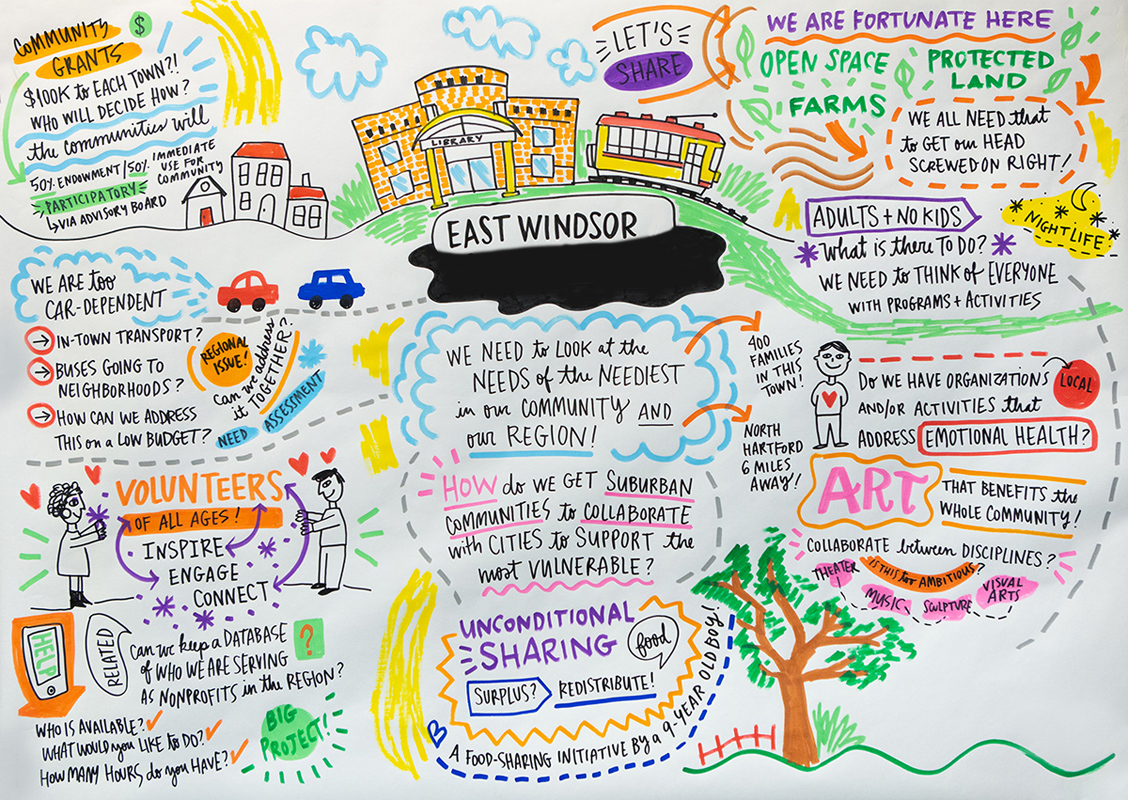 COMMUNITY
GRANTS
$
$100K to EACH TOWN?!
WHO WILL DECIDE HOW?
the communities will
50% ENDOWMENT / 50% IMMEDIATE
USE FOR
COMMUNITY
PARTICIPATORY
VIA ADVISORY BOARD
LIBRARY
EAST WINDSOR
LET'S
SHARE
WE ARE FORTUNATE HERE
OPEN SPACE
PROTECTED
LAND
FARMS
WE ALL NEED that
to GET our HEAD
SCREWED ON RIGHT!
ADULTS + NO KIDS
What is there TO DO?
WE NEED to THINK of EVERYONE
WITH PROGRAMS + ACTIVITIES
NIGHTLIFE
WE ARE too
CAR-DEPENDENT
IN-TOWN TRANSPORT?
BUSES GOING to
NEIGHBORHOODS?
HOW CAN WE ADDRESS
THIS on a LOW BUDGET?
REGIONAL
ISSUE!
can we address
it TOGETHER?
NEED ASSESSMENT
WE NEED to LOOK at the
NEEDS of the NEEDIEST
in our COMMUNITY AND
our REGION!
400
FAMILIES
IN THIS
TOWN!
NORTH
HARTFORD
6 MILES
AWAY!
HOW do WE GET SUBURBAN
COMMUNITIES to COLLABORATE
with CITIES to SUPPORT the
most VULNERABLE?
Do WE HAVE ORGANIZATIONS
LOCAL
AND/OR ACTIVITIES that
ADDRESS EMOTIONAL HEALTH?
ART
THAT BENEFITS the
WHOLE COMMUNITY!
COLLABORATE between DISCIPLINES?
IS THIS too AMBITIOUS?
THEATER!
MUSIC
SCULPTURE
VISUAL
ARTS
VOLUNTEERS
OF ALL AGES!
INSPIRE
ENGAGE
CONNECT
HELP
RELATED
Can we keep a DATABASE
of WHO WE ARE SERVING
AS NONPROFITS in the REGION?
?
WHO IS AVAILABLE?
WHAT WOULD you LIKE to DO?
HOW MANY HOURS do you HAVE?
BIG
PROJECT!
UNCONDITIONAL
SHARING
food
SURPLUS?
REDISTRIBUTE!
A FOOD-SHARING INITIATIVE BY a 9-YEAR OLD BOY!